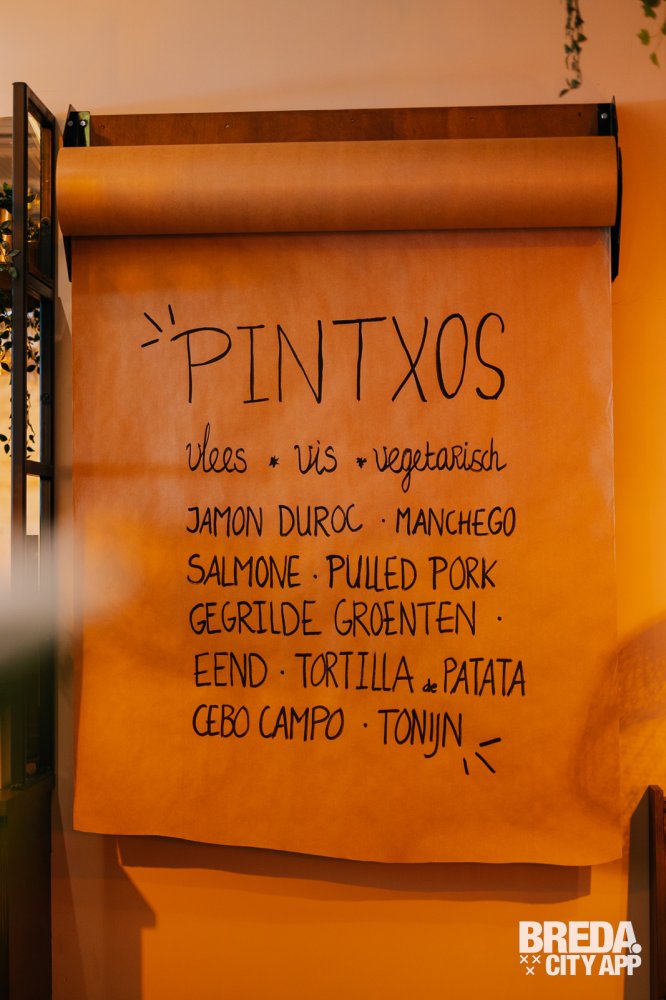 PINTXOS
vlees * vis * vegetarisch
JAMON DUROC · MANCHEGO
SALMONE · PULLED PORK
GEGRILDE GROENTEN ·
EEND · TORTILLA de PATATA
CEBO CAMPO · TONIJN
BREDA.
CITY APP